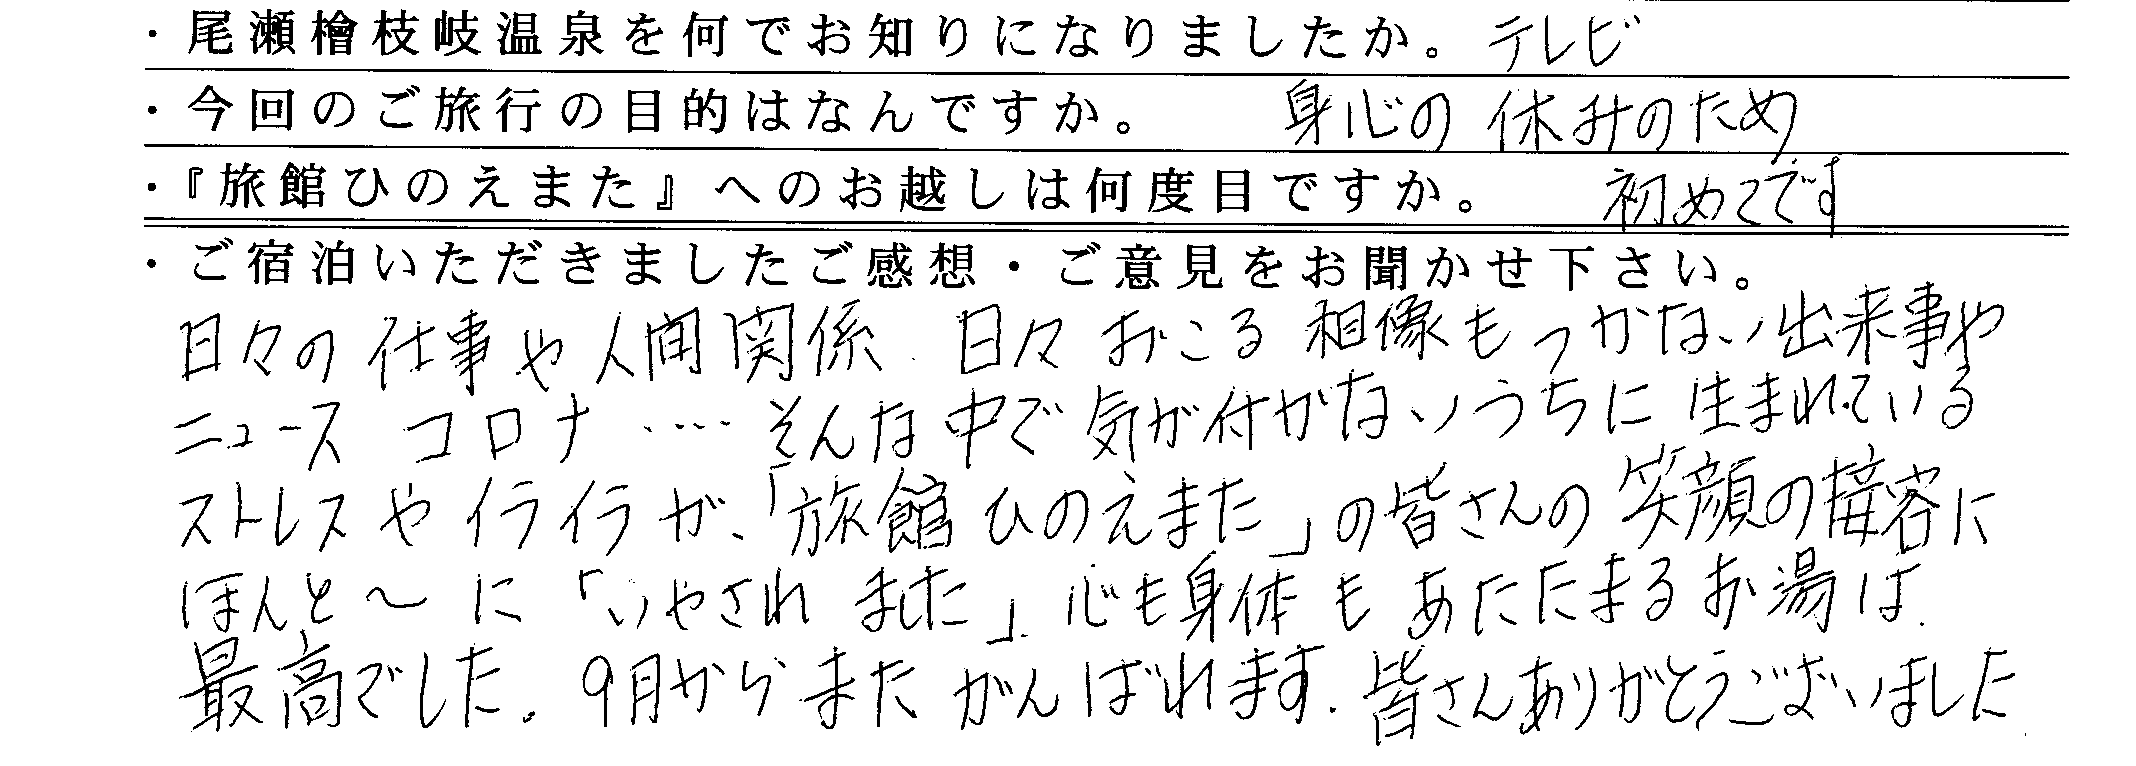 ・尾瀬檜枝岐温泉を何でお知りになりましたか。 テレビ
・今回のご旅行の目的はなんですか。 身心の休みのため
・『旅館ひのえまた』へのお越しは何度目ですか。 初めてです
・ご宿泊いただきましたご感想・ご意見をお聞かせ下さい。
日々の仕事や人間関係、日々おこる想像もつかない出来事や
ニュース コロナ ‥‥ そんな中で気が付がないうちに生まれている
ストレスやイライラが、「旅館ひのえまた」の皆さんの笑顔の接客に
ほんと〜に「いやされました」心も身体もあたたまるお湯は、
最高でした。9月からまたがんばれます。皆さんありがとうございました